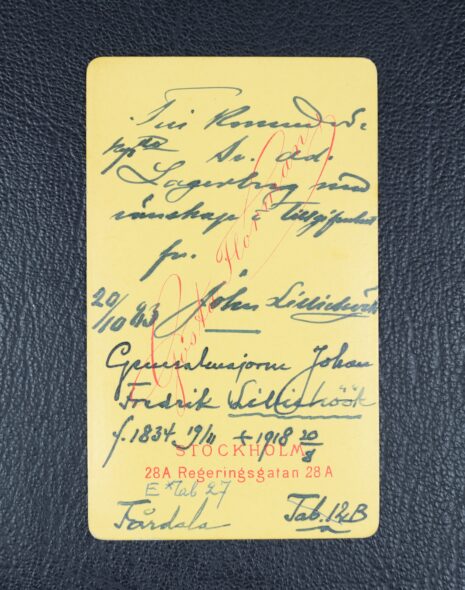 Till
Sv. Ad.
Lagerberg med
vänskap & tillgifvenhet
fr.
20/10 93 John Lilliehöök
Gösta Florman
Generalmajoren Johan
Fredrik Lilliehöök
f. 1834 19/11 + 1918 20/8
STOCKHOLM
28A Regeringsgatan 28A
Tab 27
Fårdala Tab. 12B